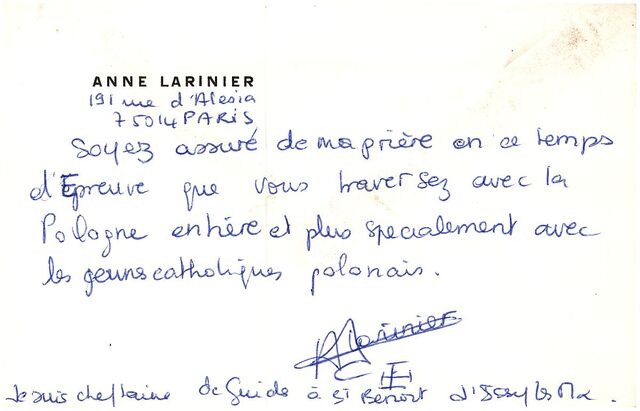 ANNE LARINIER
191 rue d'Alesia
75014 PARIS
Soyez assuré de ma prière en ce temps
d'Epreuve que vous traversez avec la
Pologne entière et plus specialement avec
les jeuns catholiques polonais.
ALarinier
Je suis cheftaine de Guide à St Benoit d'Issy les Mx.